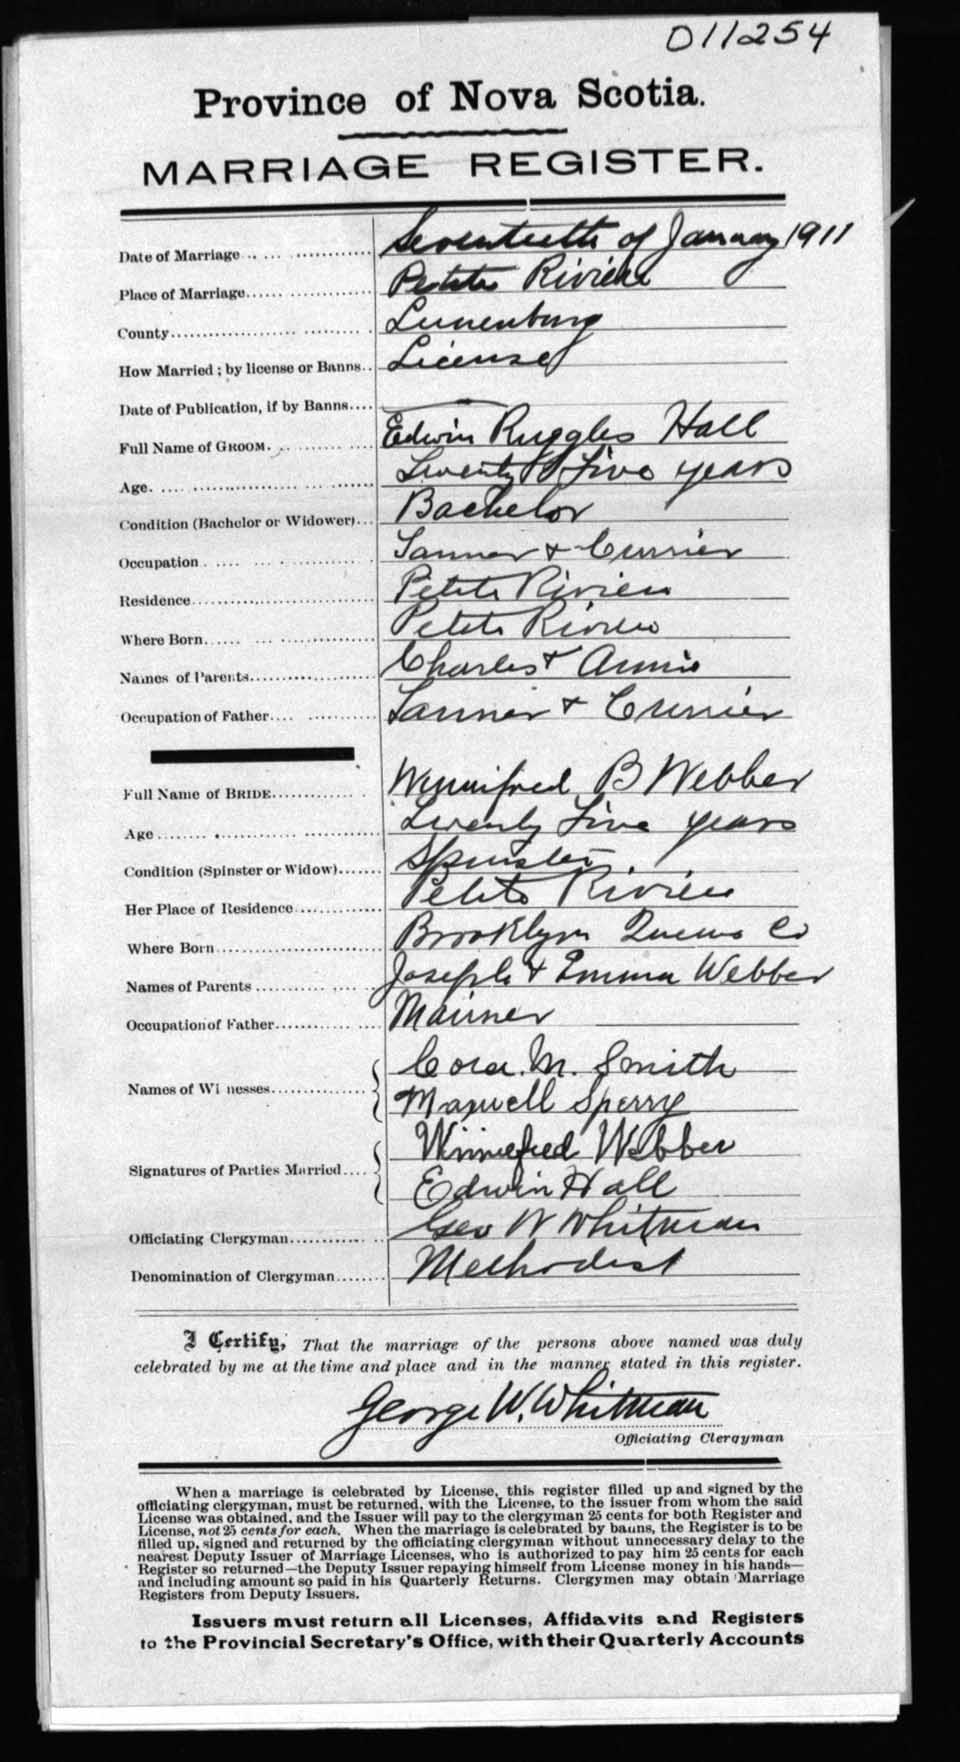 011254
Province of Nova Scotia.
MARRIAGE REGISTER.
Date of Marriage Seventeeth of January 1911
Place of Marriage Petite Riviere
County Lunenburg
How Married; by license or Banns License
Date of Publication, if by Banns
Full Name of GROOM. Edwin Ruggles Hall
Age Twenty Five years
Condition (Bachelor or Widower) Bachelor
Occupation Tanner & Currier
Residence Petite Riviere
Where Born Petite Riviere
Names of Parents Charles & Annie
Occupation of Father Tanner & Currier
Full Name of BRIDE Wynnifred B Webber
Age Twenty Five years
Condition (Spinster or Widow) Spinster
Her Place of Residence Petite Riviere
Where Born Brooklyn Queens Co
Names of Parents Joseph & Emma Webber
Occupation of Father Mariner
Names of Wi nesses Cora. M. Smith
Maxwell Sperry
Signatures of Parties Married Winniefred Webber
Edwin Hall
Officiating Clergyman Geo W Whitman
Denomination of Clergyman Methodist
I Certify, That the marriage of the persons above named was duly
celebrated by me at the time and place and in the manner stated in this register.
George W. Whitman
Officiating Clergyman
When a marriage is celebrated by License, this register filled up and signed by the
officiating clergyman, must be returned, with the License, to the issuer from whom the said
License was obtained, and the Issuer will pay to the clergyman 25 cents for both Register and
License, not 25 cents for each. When the marriage is celebrated by banns, the Register is to be
filled up, signed and returned by the officiating clergyman without unnecessary delay to the
nearest Deputy Issuer of Marriage Licenses, who is authorized to pay him 25 cents for each
Register so returned—the Deputy Issuer repaying himself from License money in his hands—
and including amount so paid in his Quarterly Returns. Clergymen may obtain Marriage
Registers from Deputy Issuers.
Issuers must return all Licenses, Affidavits and Registers
to the Provincial Secretary's Office, with their Quarterly Accounts